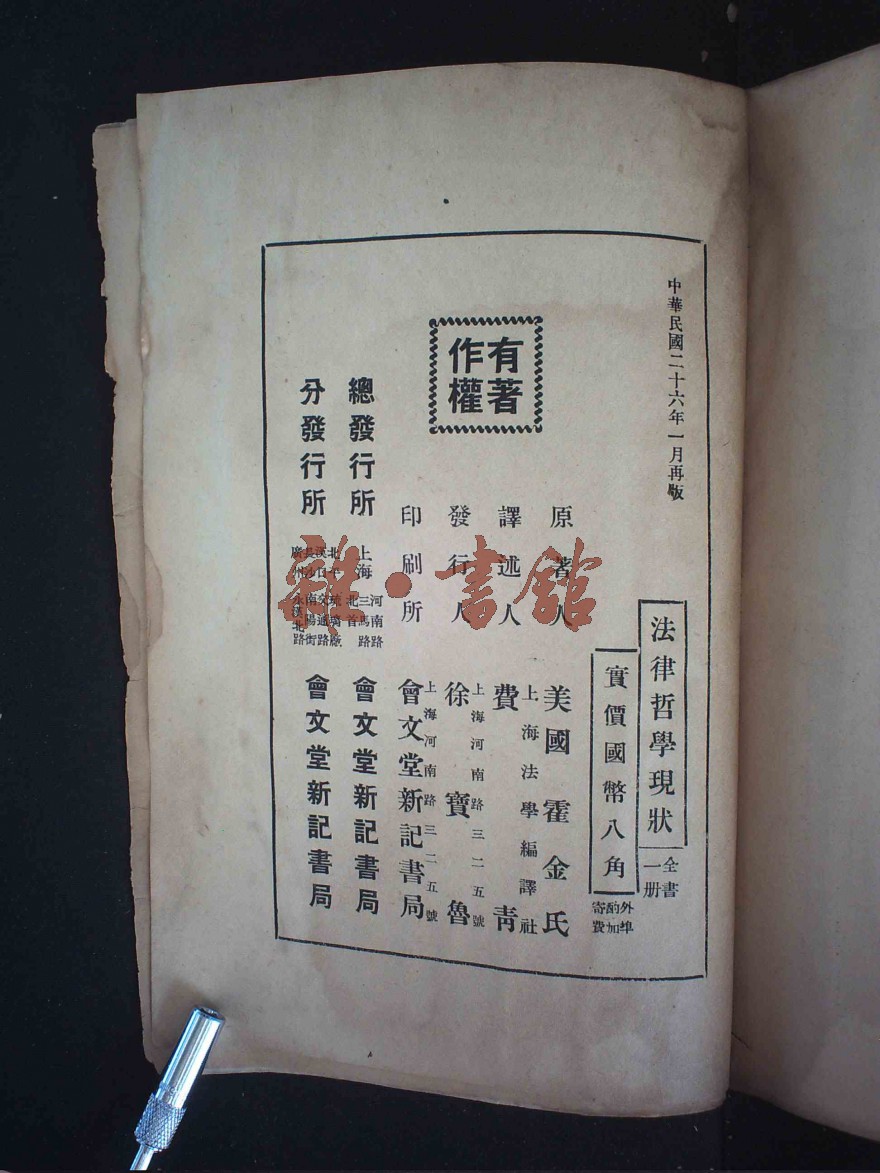 中華民國二十六年一月再版
法律哲學現狀
全書
一册
實價國幣八角
外埠
酌加
寄費
有著
作權
原著人
美國霍金氏
譯述人
上海法學編譯社
費青
發行人
上海河南路三二五號
徐寶魯
印刷所
上海河南路三二五號
會文堂新記書局
總發行所
上海
河南路
三馬路
北首
會文堂新記書局
分發行所
北平琉璃廠
漢口交通路
長沙南陽街
廣州永漢北路
會文堂新記書局
雜·書館